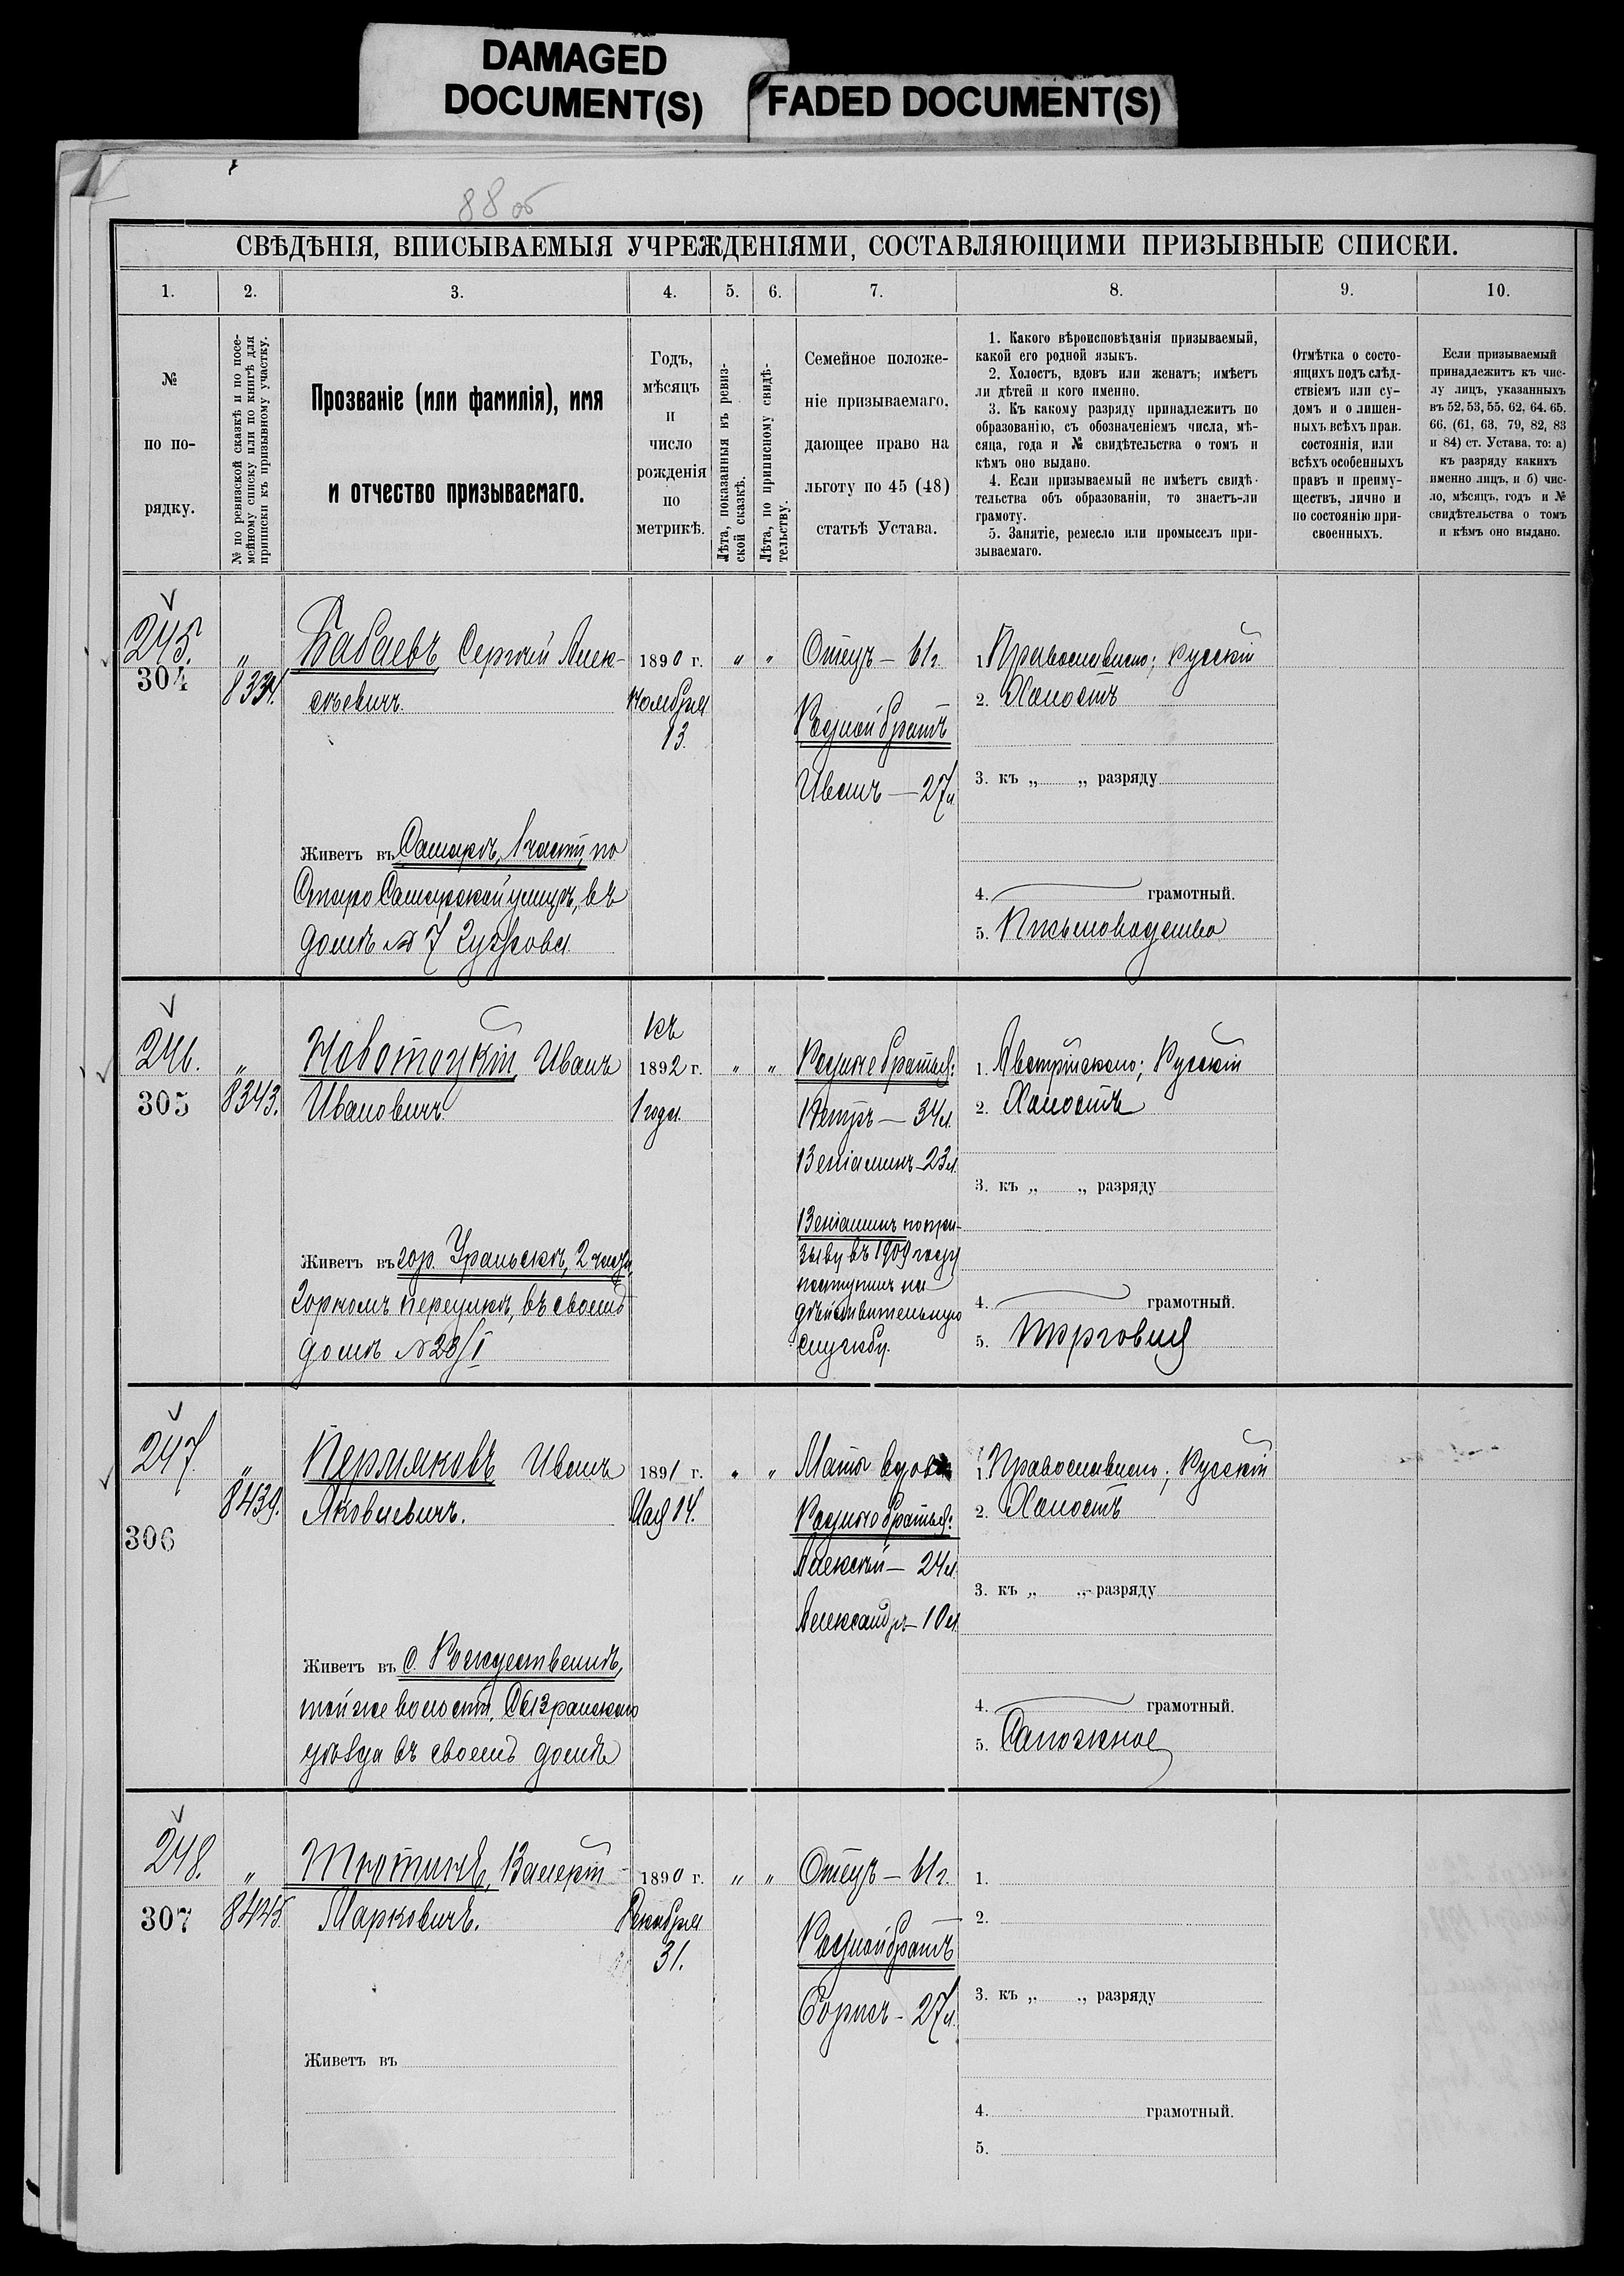 DAMAGED
DOCUMENT(S)
FADED DOCUMENT(S)
88 об
СВѢДѢНІЯ, ВПИСЫВАЕМЫЯ УЧРЕЖДЕНІЯМИ, СОСТАВЛЯЮЩИМИ ПРИЗЫВНЫЕ СПИСКИ.
1. 2. 3. 4. 5. 6. 7. 8. 9. 10.
№
по по-
рядку.
№ по ревизской сказкѣ и по посе-
мейному списку или по книгѣ для
приписки къ призывному участку.
Прозваніе (или фамилія), имя
и отчество призываемаго.
Годъ,
мѣсяцъ
и
число
рожденія
по
метрикѣ.
Лѣта, показанныя въ ревиз-
ской сказкѣ.
Лѣта, по приписному свидѣ-
тельству.
Семейное положе-
ніе призываемаго,
дающее право на
льготу по 45 (48)
статьѣ Устава.
1. Какого вѣроисповѣданія призываемый,
какой его родной языкъ.
2. Холостъ, вдовъ или женатъ; имѣетъ
ли дѣтей и кого именно.
3. Къ какому разряду принадлежитъ по
образованію, съ обозначеніемъ числа, мѣ-
сяца, года и № свидѣтельства о томъ и
кѣмъ оно выдано.
4. Если призываемый не имѣетъ свидѣ-
тельства объ образованіи, то знаетъ-ли
грамоту.
5. Занятіе, ремесло или промыселъ при-
зываемаго.
Отмѣтка о состо-
ящихъ подъ слѣд-
ствіемъ или су-
домъ и о лишен-
ныхъ всѣхъ прав.
состоянія, или
всѣхъ особенныхъ
правъ и преиму-
ществъ, лично и
по состоянію при-
своенныхъ.
Если призываемый
принадлежитъ къ чис-
лу лицъ, указанныхъ
въ 52, 53, 55, 62, 64. 65.
66, (61, 63, 79, 82, 83
и 84) ст. Устава, то: а)
къ разряду какихъ
именно лицъ, и б) чис-
ло, мѣсяцъ, годъ и №
свидѣтельства о томъ
и кѣмъ оно выдано.
245.
304
"
8334.
Бабаевъ Сергѣй Алек-
сѣевичъ.
Живетъ въ Самарѣ, 1 части, по
Старо Самарской улицѣ, въ
домѣ № 7
1890 г.
Ноября
13.
" "
Отецъ — 61 г.
Родной братъ
Иванъ — 27 л
1. Православнаго; Русскій
2. Холостъ
3. къ „ „ разряду
4. грамотный.
5. Письмоводство
246.
305
"
8343.
Новотоцкій, Иванъ
Ивановичъ
Живетъ въ гор. Уральскѣ, 2 части,
Горномъ переулкѣ, въ своемъ
домѣ № 23/I
къ
1892 г.
1 года
" "
Родные братья:
Петръ — 34 л.
Веніаминъ — 23 л.
Веніаминъ по при-
зыву въ 1909 году
поступилъ на
дѣйствительную
службу.
1. Австрійскаго; Русскій
2. Холостъ
3. къ „ „ разряду
4. грамотный.
5. Торговля
247.
306
"
8439.
Пермяковъ Иванъ
Яковлевичъ.
Живетъ въ с. Рождественнѣ,
той же волости, Сызранскаго
уѣзда въ своемъ домѣ
1891 г.
Мая 14.
" "
Мать вдова
Родные братья:
Алексѣй — 24 л.
Александръ — 10 л.
1. Православнаго; Русскій
2. Холостъ
3. къ „ „ разряду
4. грамотный.
5. Сапожное
248.
307
"
8445.
Тютинъ, Валерій
Марковичъ.
Живетъ въ
1890 г.
Декабря
31.
" "
Отецъ — 61 г.
Родной братъ
Борисъ — 27 л.
1.
2.
3. къ „ „ разряду
4. грамотный.
5.